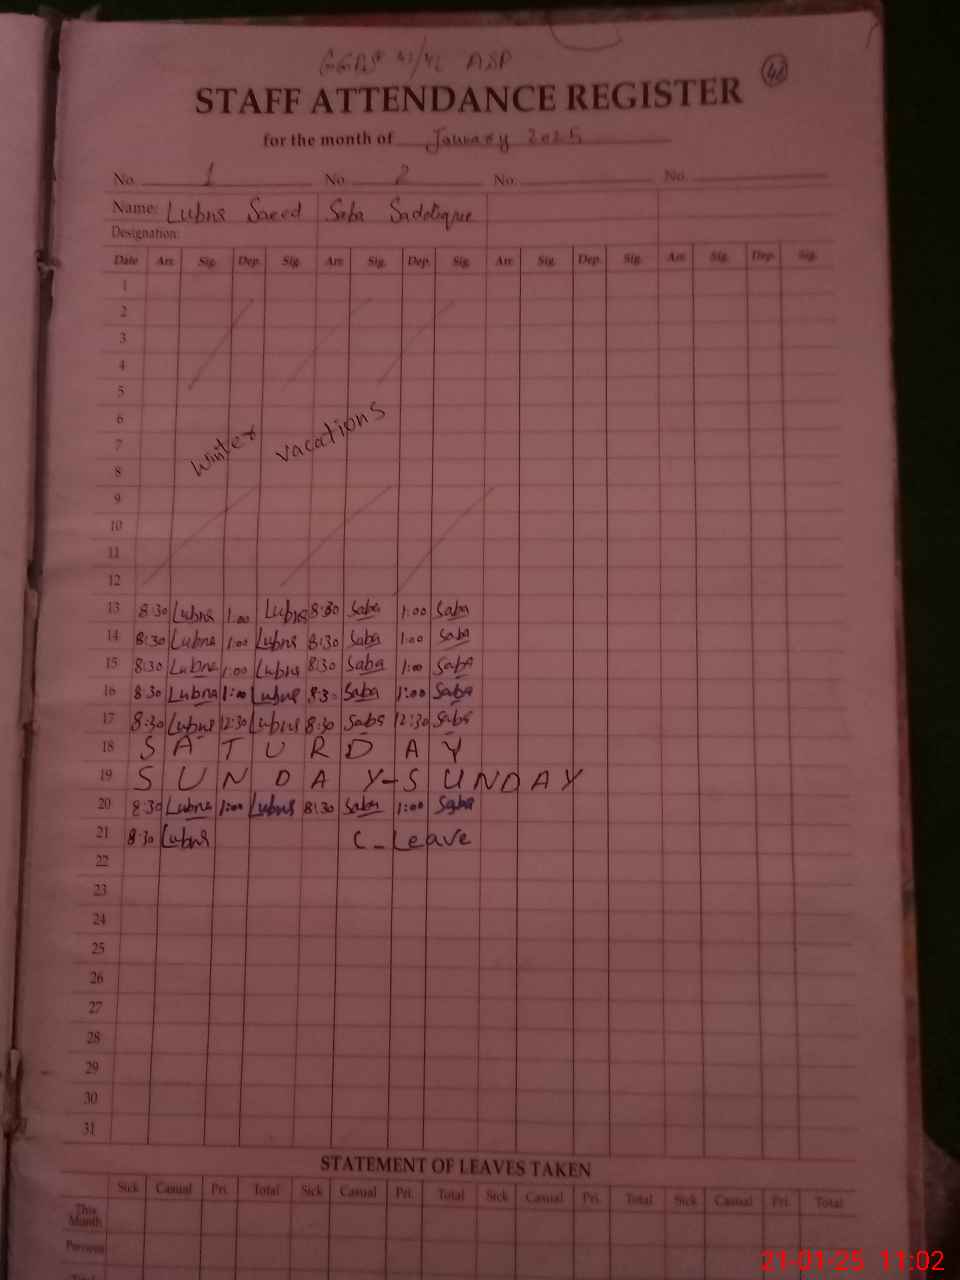 41/42 ASP
STAFF ATTENDANCE REGISTER
for the month of January 2025
No. 1 No. 2 No. No.
Name: Lubna Saeed Saba Saddique
Designation:
Date Arr. Sig. Dep. Sig. Arr. Sig. Dep. Sig. Arr. Sig. Dep. Sig. Arr. Sig. Dep. Sig.
1
2
3
4
5
6
7
winter vacations
8
9
10
11
12
13 8:30 Lubna 1:00 Lubna 8:30 Saba 1:00 Saba
14 8:30 Lubna 1:00 Lubna 8:30 Saba 1:00 Saba
15 8:30 Lubna 1:00 Lubna 8:30 Saba 1:00 Saba
16 8:30 Lubna 1:00 Lubna 8:30 Saba 1:00 Saba
17 8:30 Lubna 12:30 Lubna 8:30 Saba 12:30 Saba
18 SATURDAY
19 SUNDAY-SUNDAY
20 8:30 Lubna 1:00 Lubna 8:30 Saba 1:00 Saba
21 8:30 Lubna C-Leave
22
23
24
25
26
27
28
29
30
31
STATEMENT OF LEAVES TAKEN
Sick Casual Pri. Total Sick Casual Pri. Total Sick Casual Pri. Total Sick Casual Pri. Total
This Month
Previous
Total
21-01-25 11:02